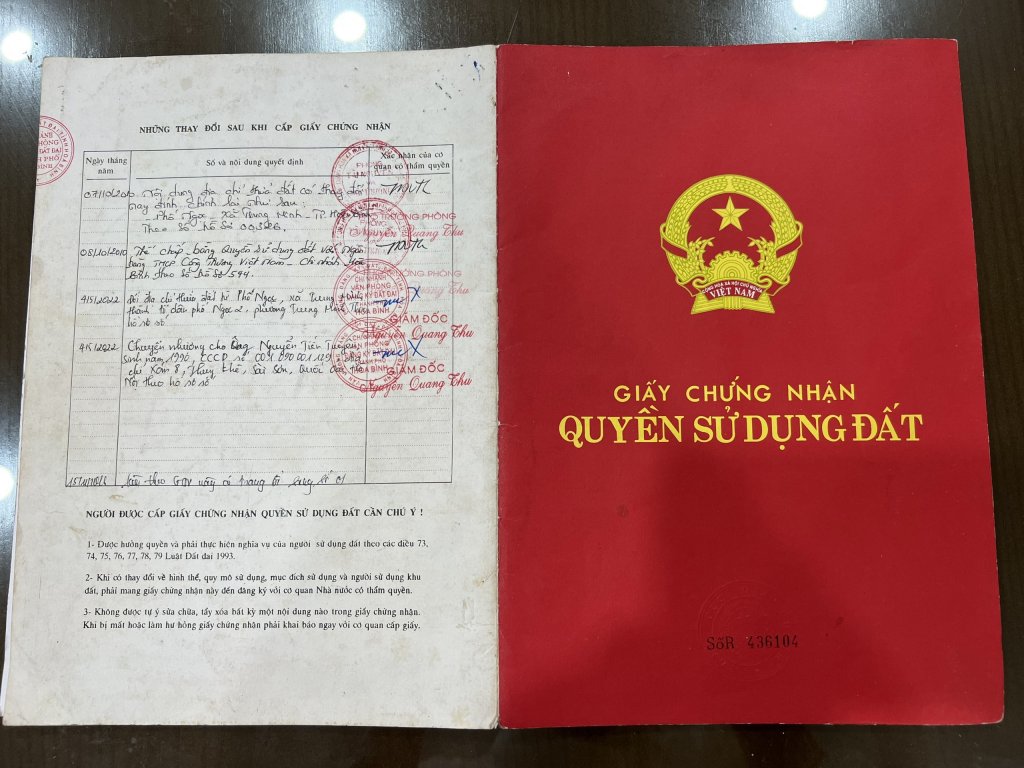 NHỮNG THAY ĐỔI SAU KHI CẤP GIẤY CHỨNG NHẬN
Ngày tháng năm
Số và nội dung quyết định
Xác nhận của cơ quan có thẩm quyền
07/10/2010
Nội dung địa chỉ thửa đất có thay đổi
nay đính chính lại như sau:
- Phố Ngọc - Xã Trung Minh - TP. Hòa Bình
Theo Số hồ sơ
TRƯỞNG PHÒNG
Nguyễn Quang Thu
08/10/2010
Thế chấp bằng quyền sử dụng đất với Ngân
hàng TMCP Công thương Việt Nam - Chi nhánh Hòa
Bình theo số hồ sơ 594.
TRƯỞNG PHÒNG
4/5/2022
địa chỉ thửa đất từ Phố Ngọc, xã Trung Minh
thành tổ dân phố Ngọc 2, phường Trung Minh
hồ sơ số
CHI NHÁNH
VĂN PHÒNG
ĐĂNG KÝ ĐẤT ĐAI
THÀNH PHỐ
HÒA BÌNH
GIÁM ĐỐC
Nguyễn Quang Thu
4/5/2022
Chuyển nhượng cho Ông Nguyễn Tiến
sinh năm 1990, CCCD số 001 090 001 129
chỉ Xóm 8, Thụy Khê, Sài Sơn, Quốc Oai, Hà
Nội theo hồ sơ số
GIÁM ĐỐC
Nguyễn Quang Thu
theo GCN này có trang bổ sung số 01
NGƯỜI ĐƯỢC CẤP GIẤY CHỨNG NHẬN QUYỀN SỬ DỤNG ĐẤT CẦN CHÚ Ý !
1- Được hưởng quyền và phải thực hiện nghĩa vụ của người sử dụng đất theo các điều 73,
74, 75, 76, 77, 78, 79 Luật Đất đai 1993.
2- Khi có thay đổi về hình thể, quy mô sử dụng, mục đích sử dụng và người sử dụng khu
đất, phải mang giấy chứng nhận này đến đăng ký với cơ quan Nhà nước có thẩm quyền.
3- Không được tự ý sửa chữa, tẩy xóa bất kỳ một nội dung nào trong giấy chứng nhận.
Khi bị mất hoặc làm hư hỏng giấy chứng nhận phải khai báo ngay với cơ quan cấp giấy.
CỘNG HÒA XÃ HỘI CHỦ NGHĨA
VIỆT NAM
GIẤY CHỨNG NHẬN
QUYỀN SỬ DỤNG ĐẤT
SốR 436104